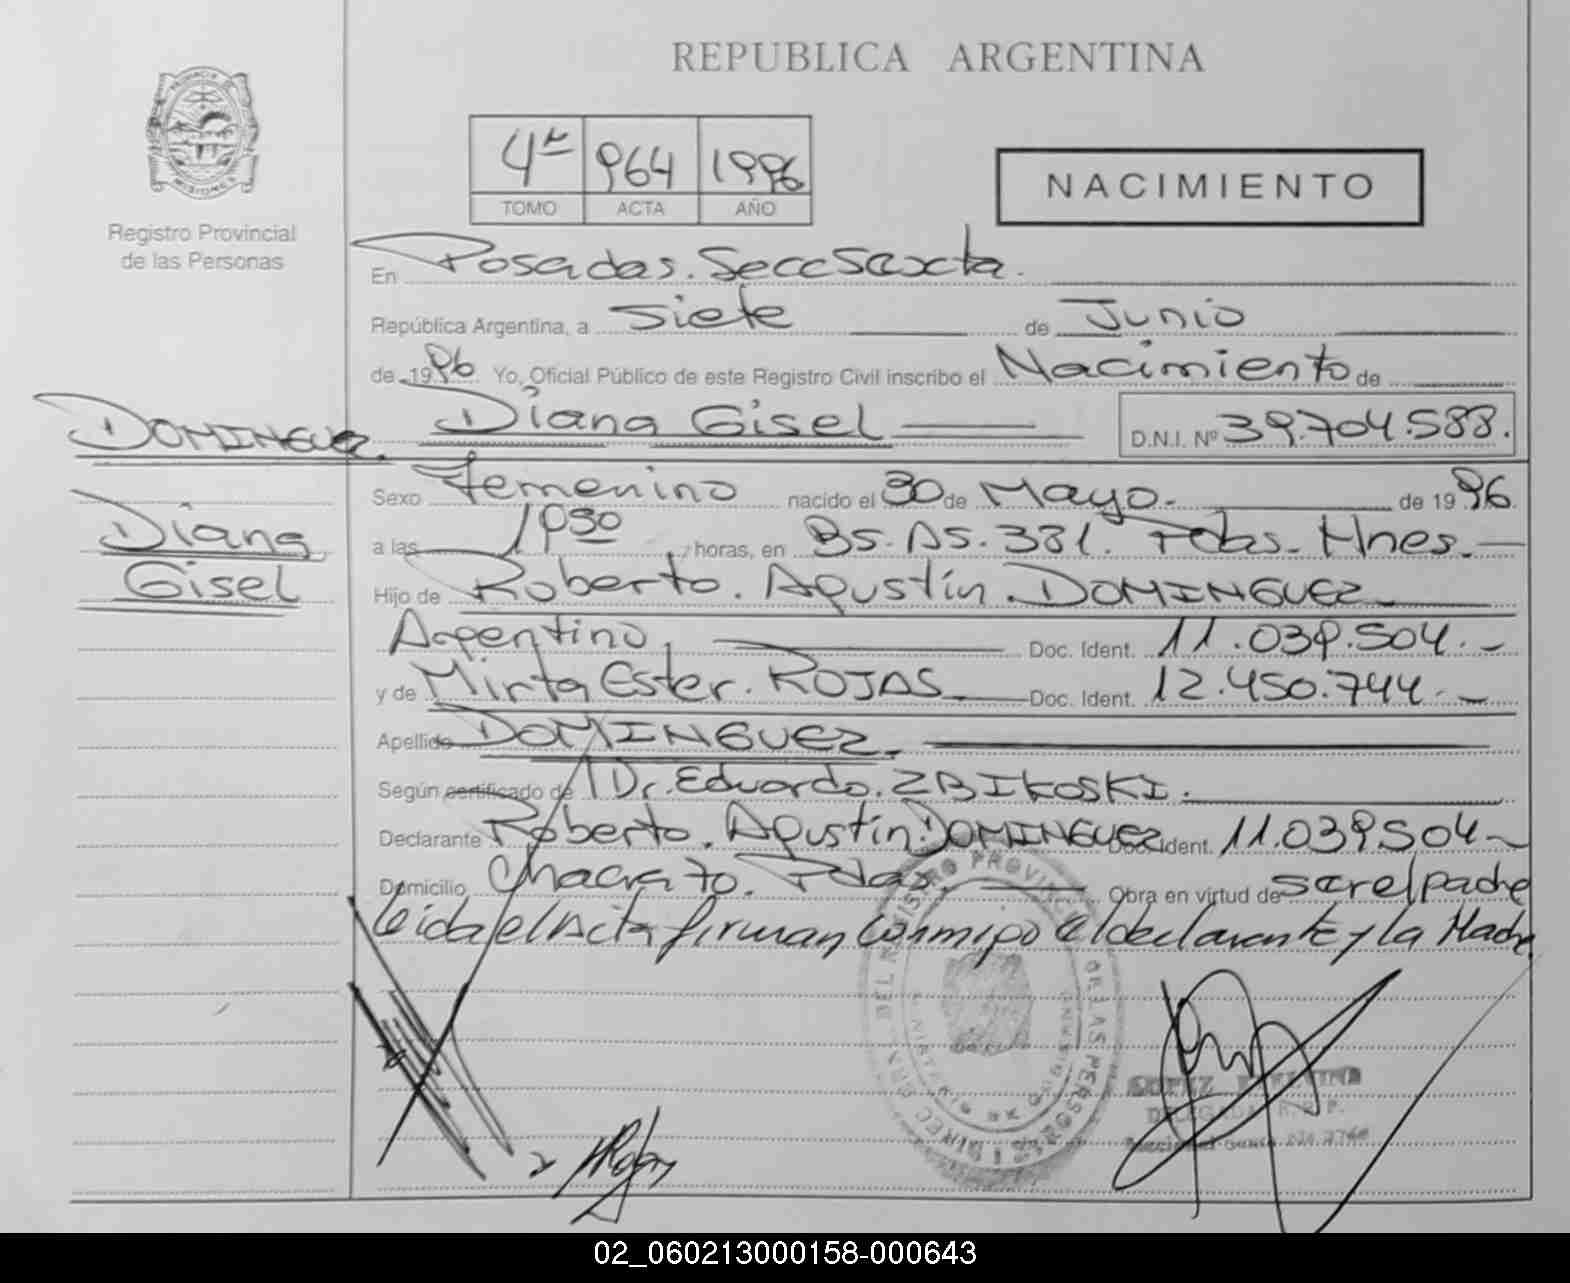 REPUBLICA ARGENTINA
PROVINCIA DE
MISIONES
Registro Provincial
de las Personas
4º 964 1996
TOMO ACTA AÑO
NACIMIENTO
En Posadas. Secc Sexta.
República Argentina, a siete de Junio
de 1996 Yo, Oficial Público de este Registro Civil inscribo el Nacimiento de
DOMINGUEZ. Diana Gisel D.N.I. Nº 39.704.588.
Diana
Gisel
Sexo Femenino nacido el 30 de Mayo. de 1996.
a las 1930 horas, en Bs. As. 331. Pdas. Mnes.
Hijo de Roberto. Agustín. DOMINGUEZ
Argentino. Doc. Ident. 11.039.504.-
y de Mirta Ester. ROJAS. Doc. Ident. 12.450.744.-
Apellido DOMINGUEZ.
Según certificado de Dr. Eduardo. ZBIKOSKI.
Declarante Roberto. Agustín. DOMINGUEZ Doc. Ident. 11.039.504-
Domicilio Chacra 70. Pdas. Obra en virtud de ser el padre
Leida el Acta firman Conmigo el declarante y la Madre
REGISTRO PROVINCIAL DE LAS PERSONAS
LOPEZ
DELEGADA R.P.P.
02_060213000158-000643